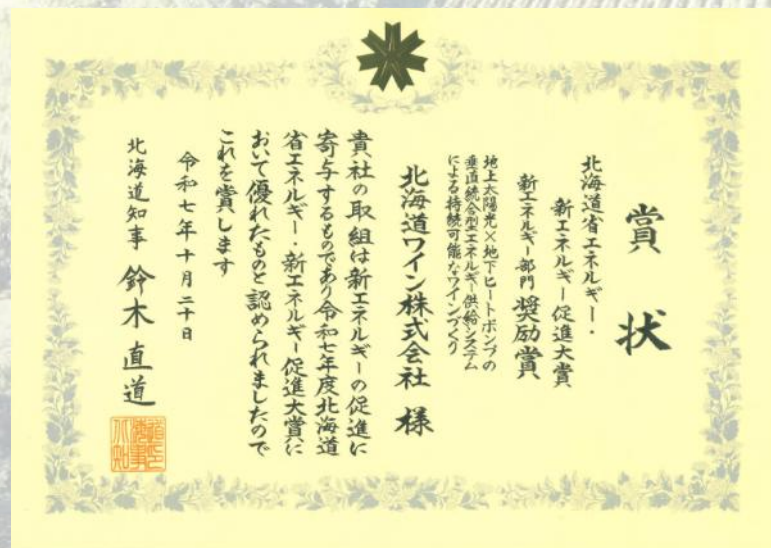 賞状
北海道省エネルギー・
新エネルギー促進大賞
新エネルギー部門 奨励賞
地上太陽光×地下ヒートポンプの
垂直統合型エネルギー供給システム
による持続可能なワインづくり
北海道ワイン株式会社 様
貴社の取組は新エネルギーの促進に
寄与するものであり令和七年度北海道
省エネルギー・新エネルギー促進大賞に
おいて優れたものと認められましたので
これを賞します
令和七年十月二十日
北海道知事 鈴木直道